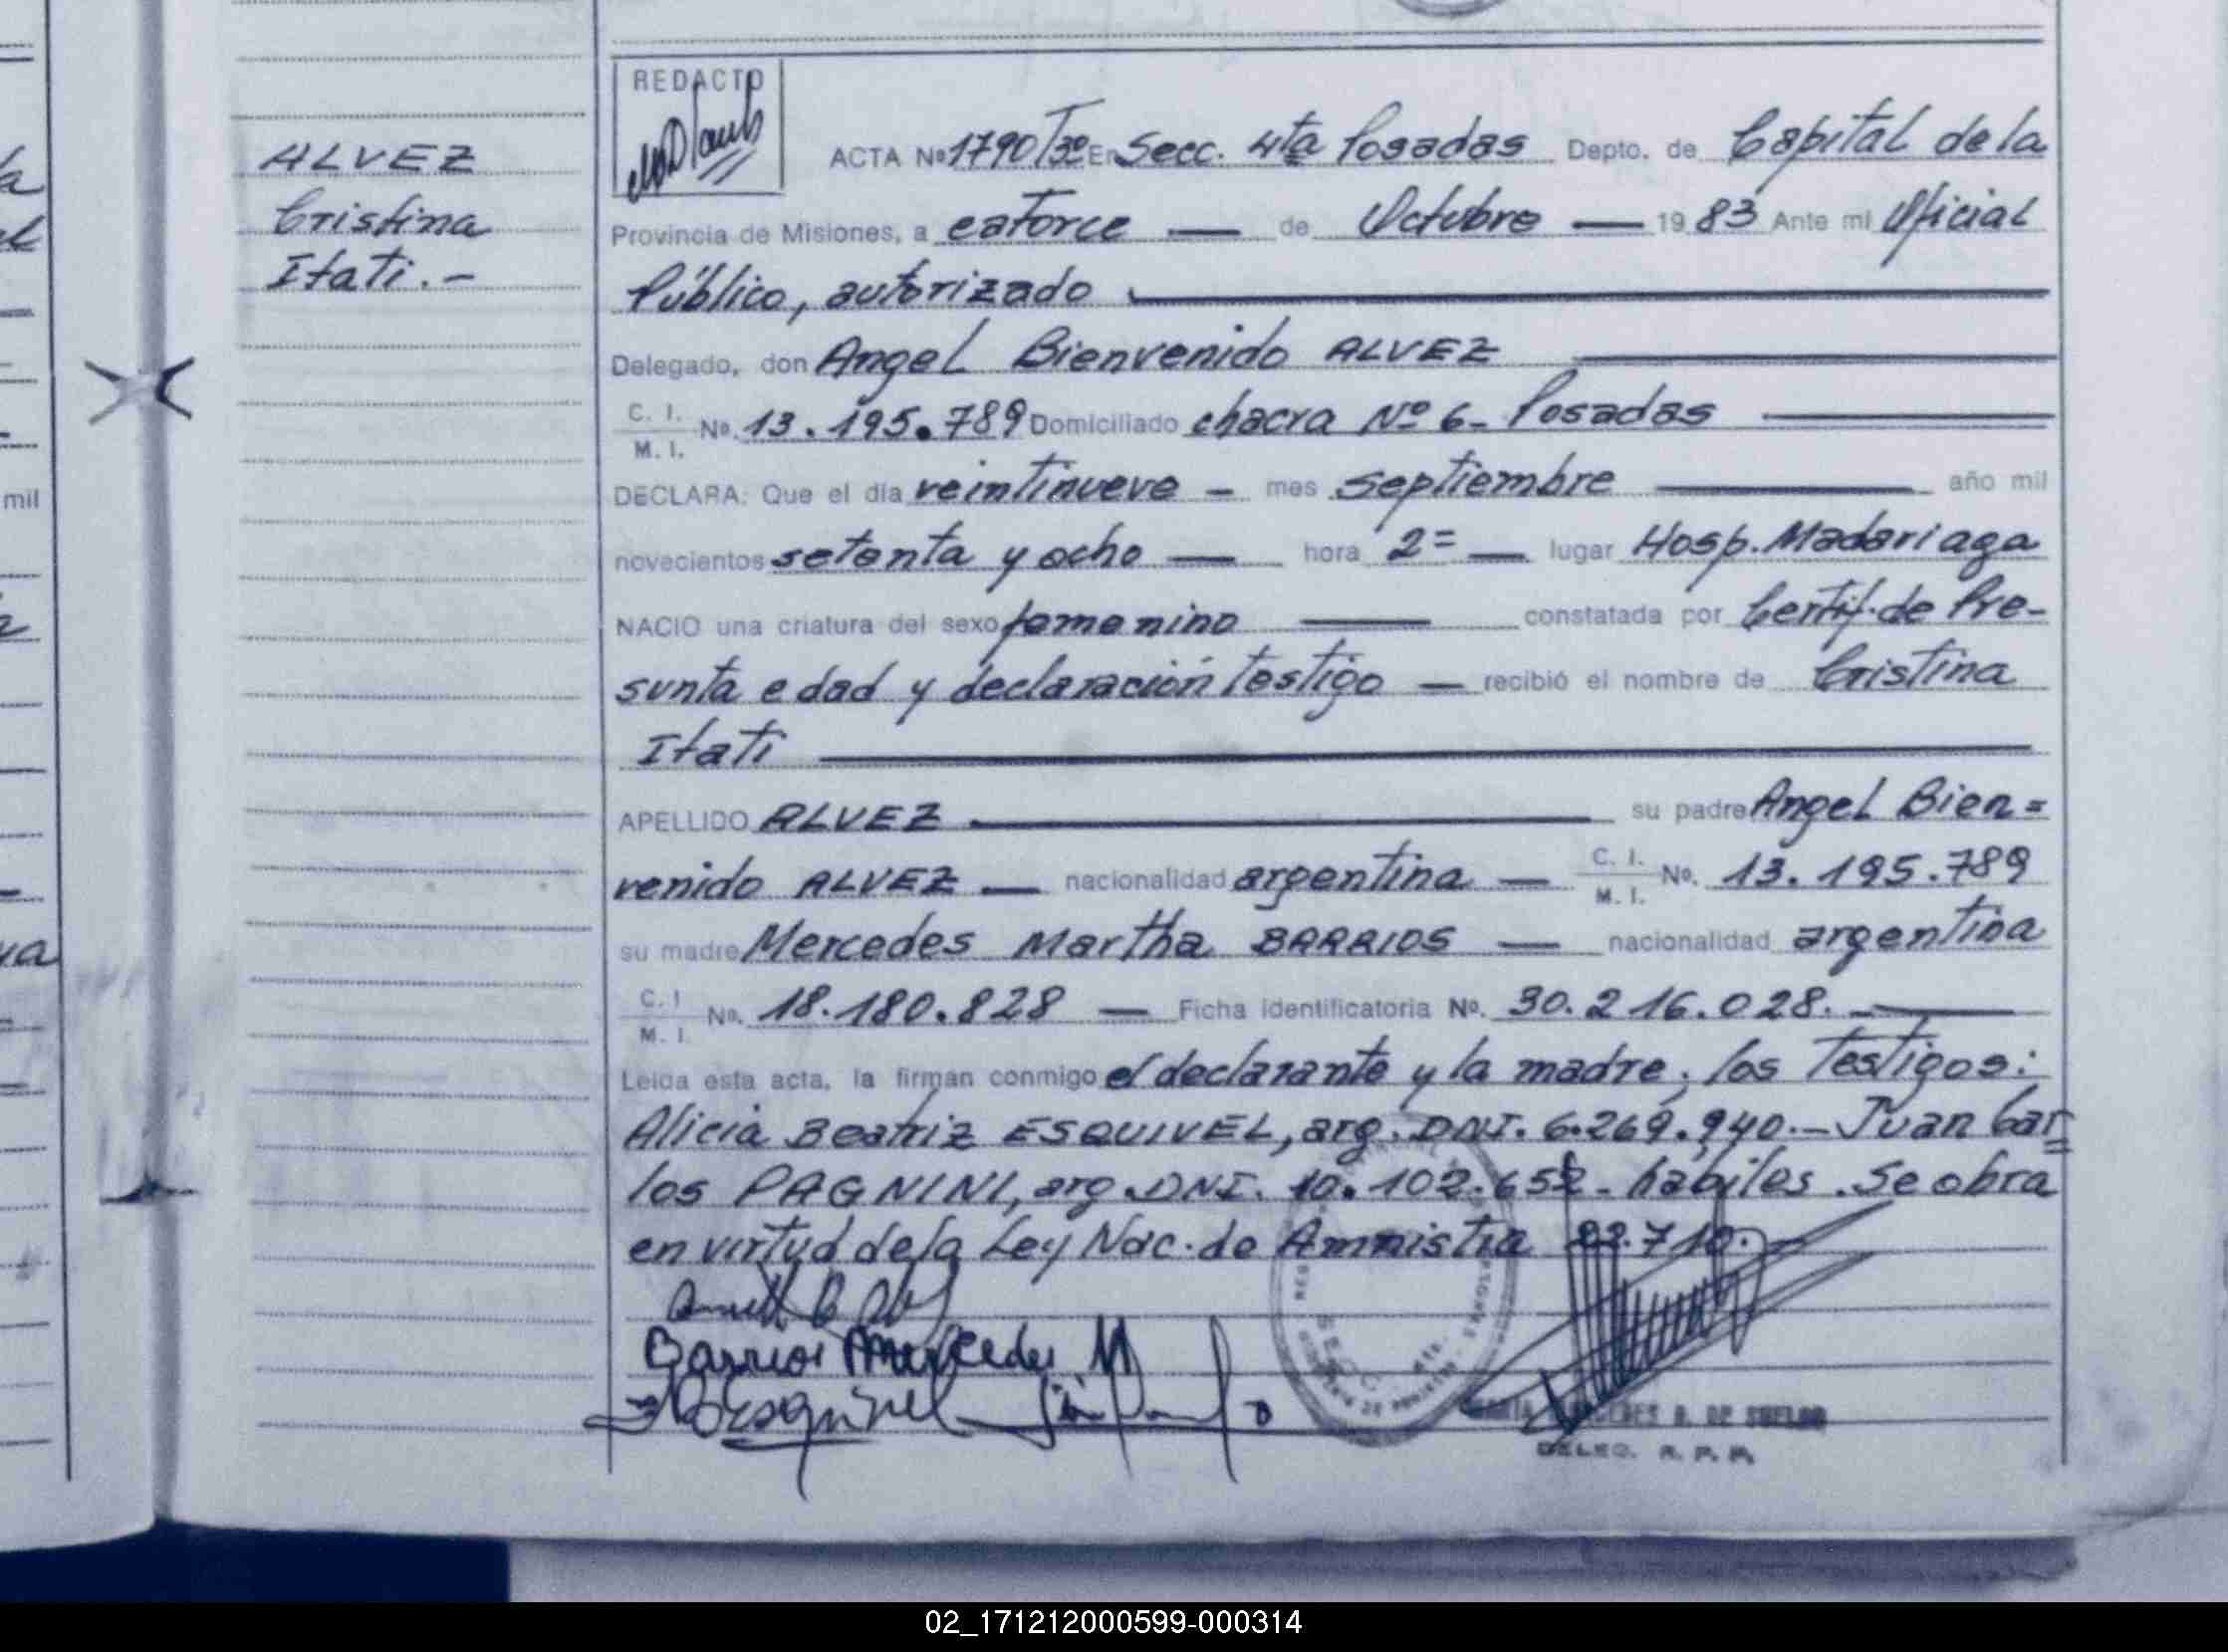 REDACTO
ALVEZ
Cristina
Itati.-
ACTA Nº 1790/Tº3º En Secc. 4ta Posadas Depto. de Capital de la
Provincia de Misiones, a catorce — de Octubre — 19 83 Ante mi Oficial
Público, autorizado
Delegado, don Angel Bienvenido ALVEZ
C. I.
M. I. Nº. 13.195.789 Domiciliado chacra Nº 6- Posadas
DECLARA: Que el día veintinueve - mes septiembre — año mil
novecientos setenta y ocho — hora 2= — lugar Hosp. Madariaga
NACIO una criatura del sexo femenino — constatada por Certif. de Pre-
sunta edad y declaración testigo — recibió el nombre de Cristina
Itati
APELLIDO ALVEZ — su padre Angel Bien=
venido ALVEZ — nacionalidad argentina — C. I. M. I. Nº. 13.195.789
su madre Mercedes Martha BARRIOS — nacionalidad argentina
C. I M. I Nº. 18.180.828 — Ficha identificatoria Nº. 30.216.028. —
Leida esta acta, la firman conmigo el declarante y la madre; los testigos:
Alicia Beatriz ESQUIVEL, arg. DNI. 6.269.940.- Juan Car=
los PAGNINI, arg. DNI. 10.102.652 - habiles. Se obra
en virtud de la Ley Nac. de Amnistia 22.710.-
Barrios Mercedes M
B Esquivel
DELEG. R. P. P.
mil
02_171212000599-000314